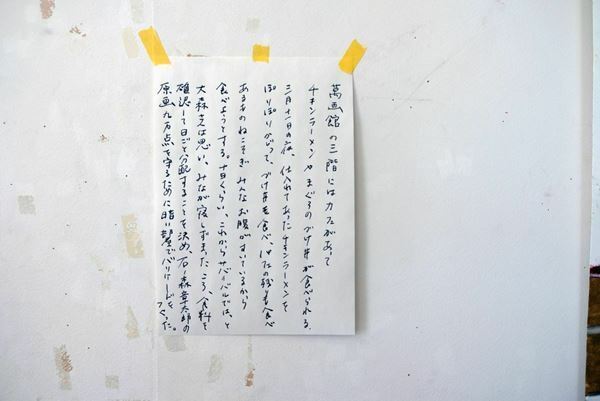 萬画館の三階にはカフェがあって
チキンラーメンやまぐろのづけ丼が食べられる。
三月十一日の夜、仕入れてあったチキンラーメンを
ぽりぽりかじって、づけ丼も食べ、他の残りも食べ
あるものねこそぎみんなお腹がすいているから
食べようとする。十日くらい、これからサバイバルでは、と
大森さんは思い、みなが寝しずまったころ、食料を
確認して日ごと分配することを決め、石ノ森章太郎の
原画九万点を守るために暗い中でバリケードをつくった。